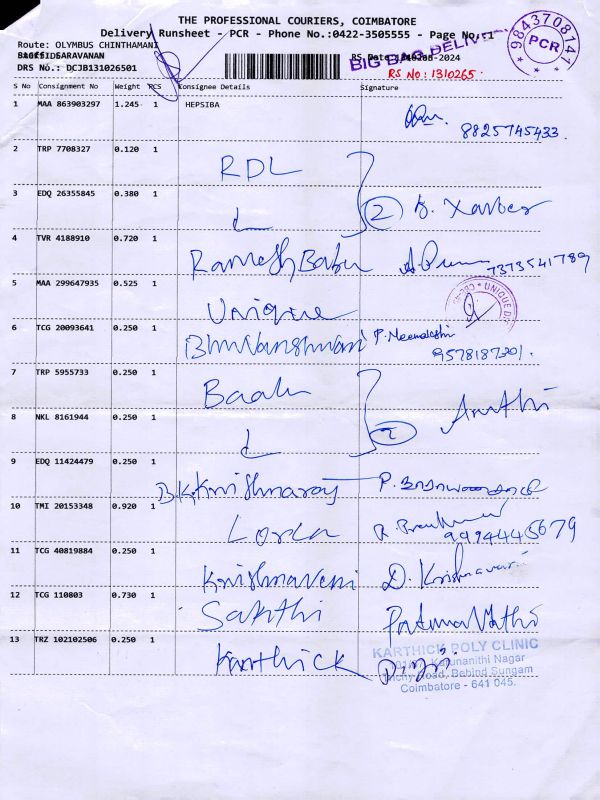 THE PROFESSIONAL COURIERS, COIMBATORE
Delivery Runsheet - PCR - Phone No.:0422-3505555 - Page No.:1
Route: OLYMBUS CHINTHAMANI
SARAVANAN
DRS No.: DCJB131026501
RS Date: -2024
BIG BAG DELIVERY
RS NO: 1310265.
9843708141
PCR
S No Consignment No Weight PCS Consignee Details Signature
1 MAA 863903297 1.245 1 HEPSIBA
8825745433.
2 TRP 7708327 0.120 1 RDL
3 EDQ 26355845 0.380 1 (2)
4 TVR 4188910 0.720 1 Ramesh Babu 7373541789
5 MAA 299647935 0.525 1 Unique
UNIQUE
6 TCG 20093641 0.250 1 P. Meenakshi
9578187301.
7 TRP 5955733 0.250 1 Baalu
8 NKL 8161944 0.250 1 Aruthi
9 EDQ 11424479 0.250 1 B.K. Krishnaraj
10 TMI 20153348 0.920 1
9994445679
11 TCG 40819884 0.250 1 Krishnaveni D. Krishnaveni
12 TCG 110803 0.730 1 Sakthi Patmavathi
13 TRZ 102102506 0.250 1 Karthick
KARTHICK POLY CLINIC
Karunanithi Nagar
Trichy Road, Behind Sungam
Coimbatore - 641 045.